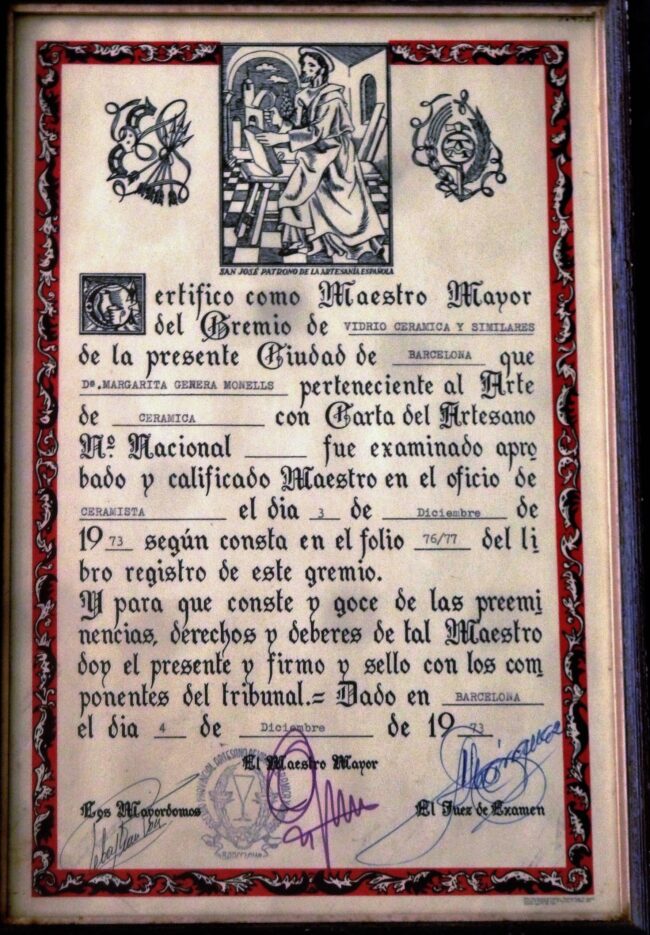 SAN JOSÉ PATRONO DE LA ARTESANÍA ESPAÑOLA
Certifico como Maestro Mayor
del Gremio de VIDRIO CERAMICA Y SIMILARES
de la presente Ciudad de BARCELONA que
Dª.MARGARITA GENERA MONELLS perteneciente al Arte
de CERAMICA con Carta del Artesano
Nº. Nacional fue examinado apro
bado y calificado Maestro en el oficio de
CERAMISTA el dia 3 de Diciembre de
1973 según consta en el folio 76/77 del li
bro registro de este gremio.
Y para que conste y goce de las preemi
nencias, derechos y deberes de tal Maestro
doy el presente y firmo y sello con los com
ponentes del tribunal.= Dado en BARCELONA
el dia 4 de Diciembre de 1973
El Maestro Mayor
Los Mayordomos El Juez de Examen
BARCELONA